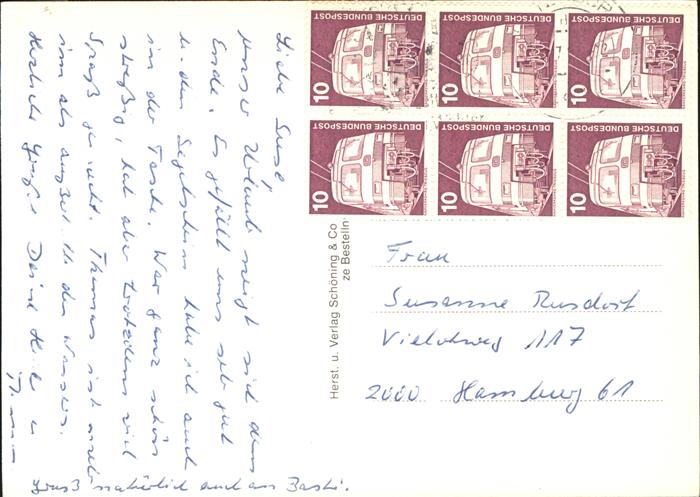 Liebe Susi,
unser Urlaub neigt sich dem
Ende. Es gefällt uns sehr gut
u. den Segelschein habe ich auch
in der Tasche. War ganz schön
stressig, hat aber trotzdem viel
Spaß gemacht. Thomas ist mehr
im als außerhalb des Wassers.
Herzliche Grüße Deine
Gruß natürlich auch an Basti.
DEUTSCHE BUNDESPOST 10
DEUTSCHE BUNDESPOST 10
DEUTSCHE BUNDESPOST 10
DEUTSCHE BUNDESPOST 10
DEUTSCHE BUNDESPOST 10
DEUTSCHE BUNDESPOST 10
Herst. u. Verlag Schöning & Co
ze Bestelln
Frau
Susanne Rusdorf
Vielohweg 117
2000 Hamburg 61